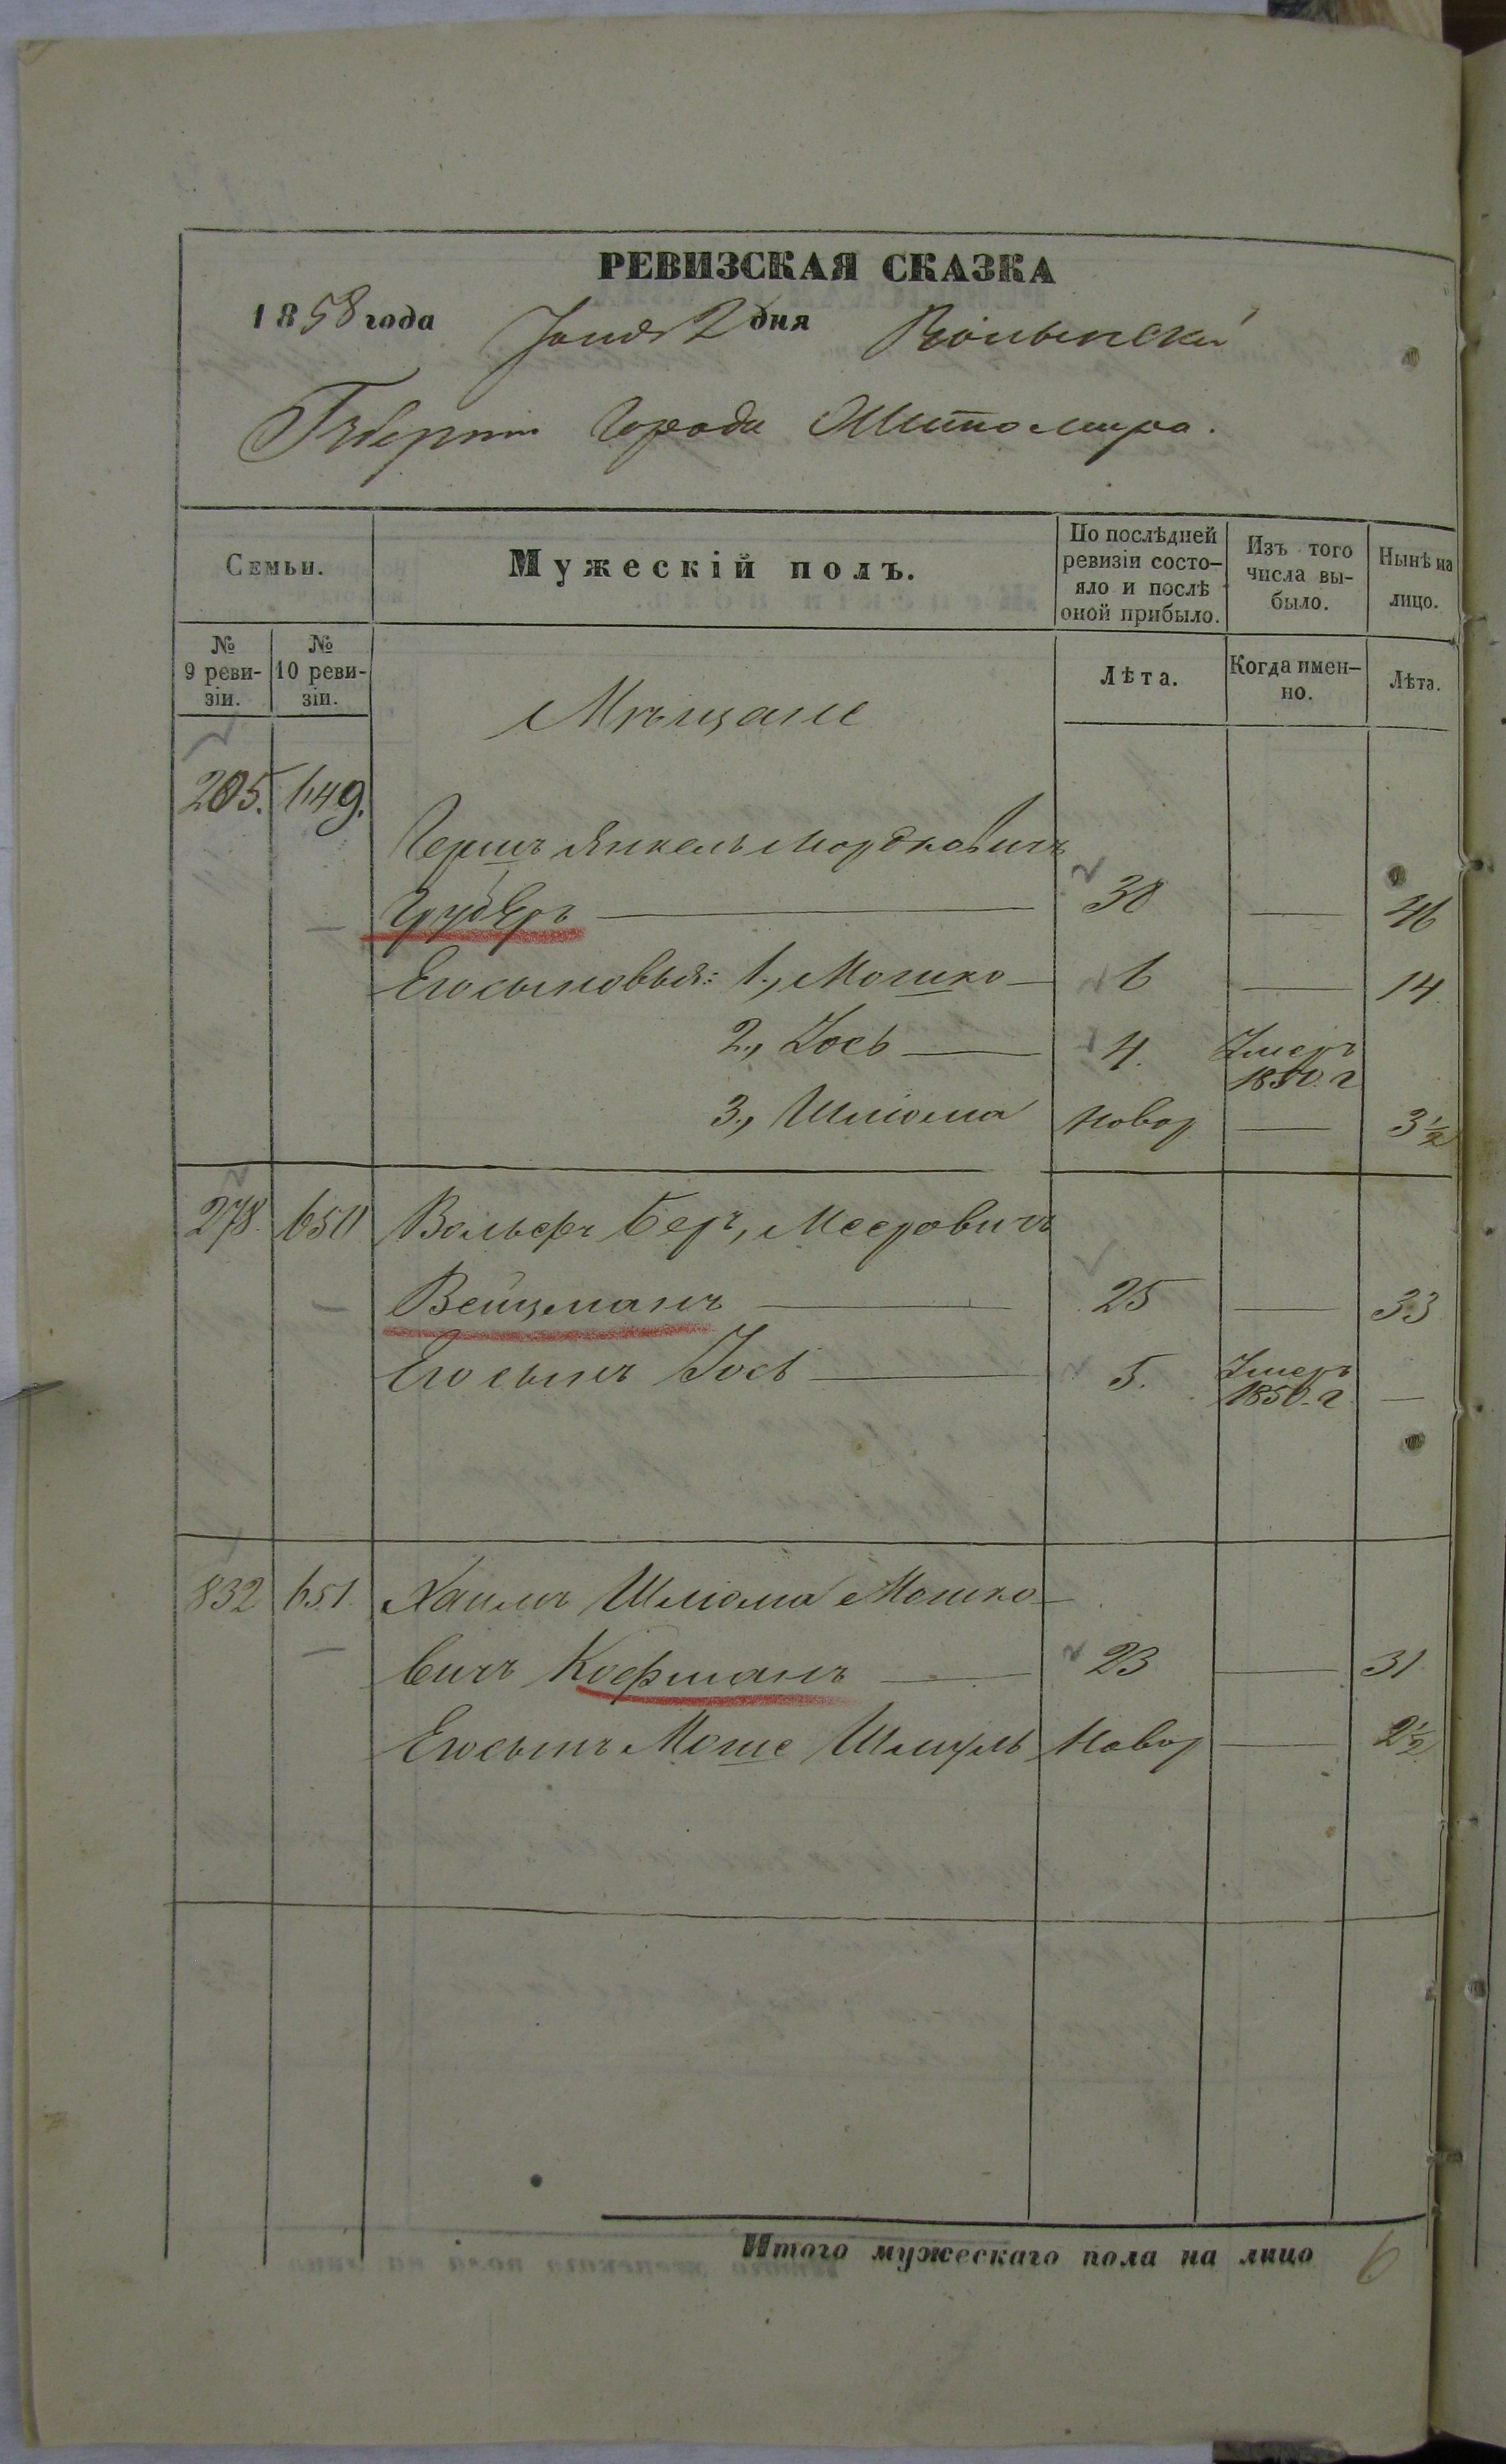 РЕВИЗСКАЯ СКАЗКА
1858 года Іюня 2 дня Волынской
Губерніи Города Житомира.
Семьи.
Мужескій полъ.
По послѣдней ревизіи состо-
яло и послѣ
оной прибыло.
Изъ того
числа вы-
было.
Нынѣ на
лицо.
№
9 реви-
зіи.
№
10 реви-
зіи.
Лѣта.
Когда имен-
но.
Лѣта.
Мѣщане
205. 649.
Гершъ Янкель Мордковичъ
Груберъ 38 46
Его сыновья: 1., Мошко 6 14
2., Іось 4. Умеръ
1850. г
3., Шліома Новор 3 1/2
278. 650 Вольфъ Беръ, Мееровичъ
Вейцманъ 25 33
Его сынъ Іось 5. Умеръ
1850. г
832 651. Хаимъ Шліома Мошко-
вичъ Кофманъ 23 31
Его сынъ Моше Шмуль Новор 2 1/2
Итого мужескаго пола на лицо 6